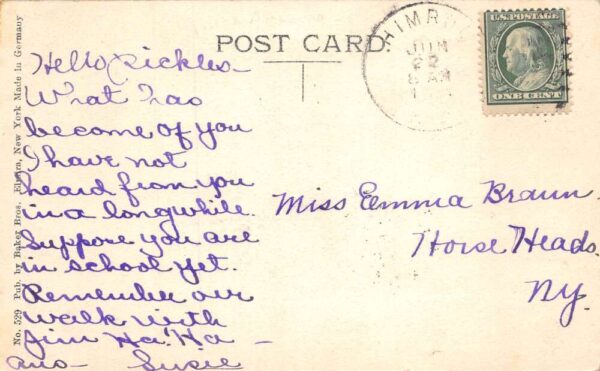 POST CARD.
Hello Pickles-
What has
become of you
I have not
heard from you
in a longwhile.
Suppose you are
in school yet.
Remember our
walk with
Jim Ha! Ha -
ans- Susie
Miss Emma Braun.
Horse Heads.
NY.
HIMR
JUN
22
8 AM
1
U.S. POSTAGE
ONE CENT
No. 529 Pub. by Baker Bros. Elmira, New York Made in Germany